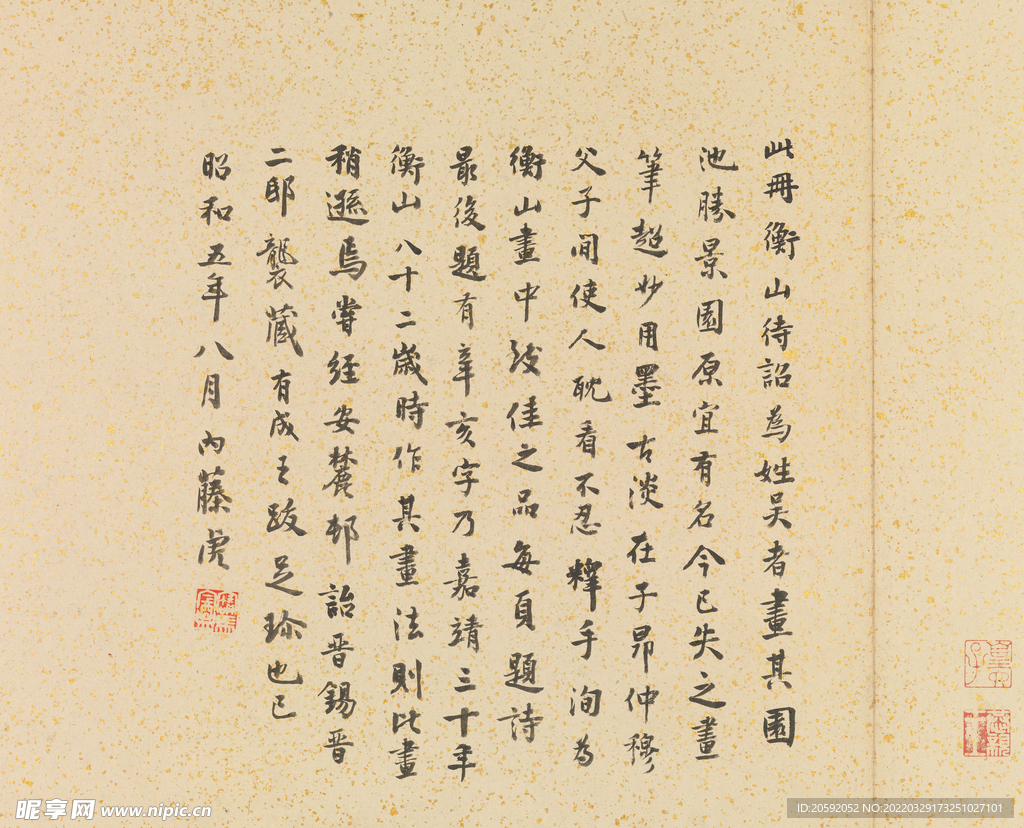 此冊衡山待詔為姓吳者畫其園
池勝景園原宜有名今已失之畫
筆超妙用墨古淡在子昂仲穆
父子間使人耽看不忍釋手洵為
衡山畫中致佳之品每頁題詩
最後題有辛亥字乃嘉靖三十年
衡山八十二歲時作其畫法則此畫
稍遜焉嘗經安麓邨詒晉錫晉
二邸襲藏有成王跋足珍也已
昭和五年八月內藤虎
昵享网 www.nipic.cn
ID:20592052 NO:20220329173251027101